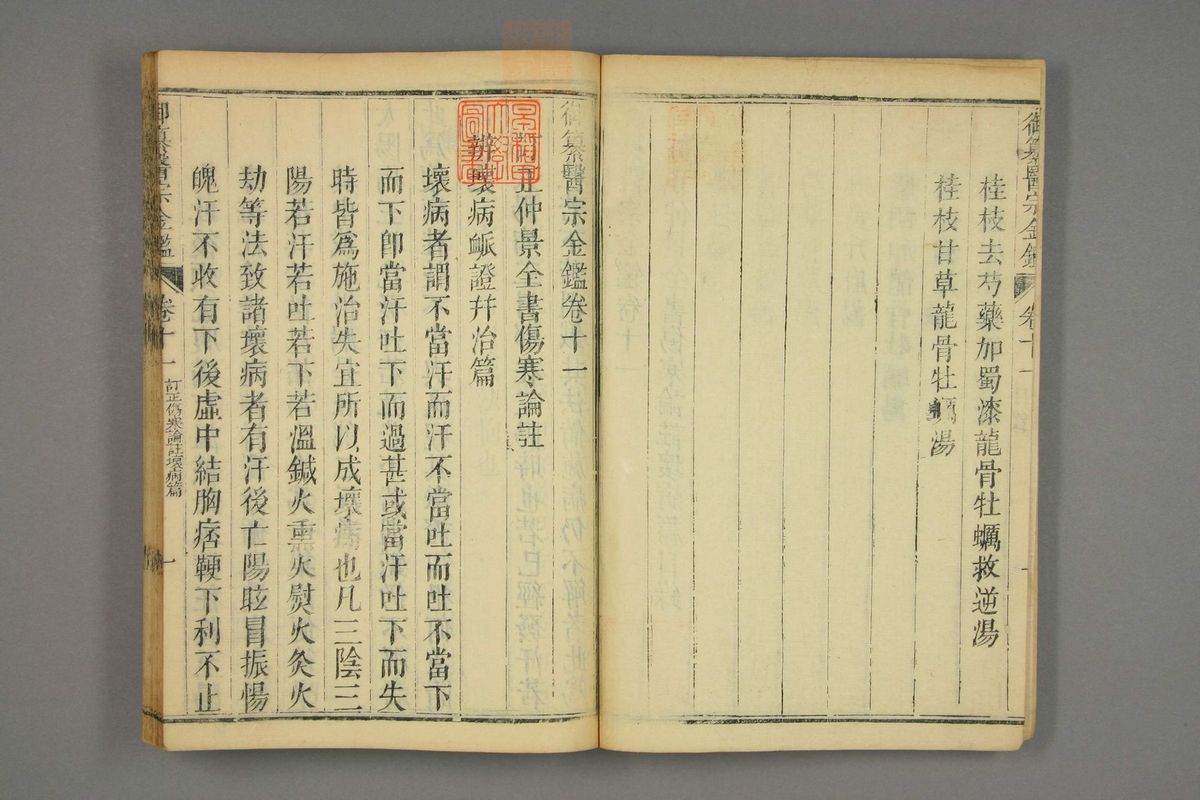 御纂醫宗金鑑 卷十一
桂枝去芍藥加蜀漆龍骨牡蠣救逆湯
桂枝甘草龍骨牡蠣湯
御纂醫宗金鑑卷十一
訂正仲景全書傷寒論註
辨壞病脈證并治篇
壞病者謂不當汗而汗不當吐而吐不當下
而下卽當汗吐下而過甚或當汗吐下而失
時皆爲施治失宜所以成壞病也凡三陰三
陽若汗若吐若下若溫鍼火熏火熨火灸火
劫等法致諸壞病者有汗後亡陽眩冒振惕
魄汗不收有下後虛中結胸痞鞕下利不止
御纂醫宗金鑑 卷十一 訂正傷寒論註壞病篇 一